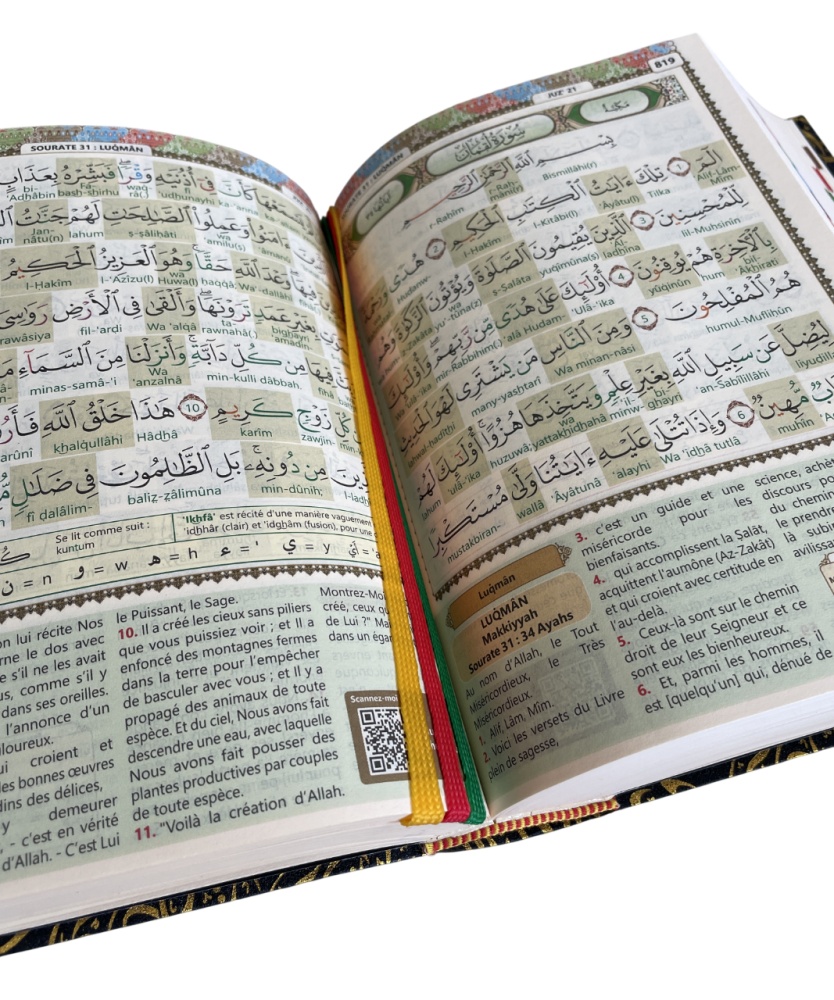 819
JUZ' 21
سورة لقمان
مكية
بِسْمِ اللَّهِ الرَّحْمَٰنِ الرَّحِيمِ
Bismillâhi(r) r-Raḥmâni(r) r-Raḥîm
الٓمٓ ١ تِلْكَ ءَايَٰتُ ٱلْكِتَٰبِ ٱلْحَكِيمِ ٢ هُدًى
Alif-Lâm-Mîm Tilka 'Âyâtu(l) l-Kitâbi(l) l-Ḥakîm Hudan
لِّلْمُحْسِنِينَ ٣ ٱلَّذِينَ يُقِيمُونَ ٱلصَّلَوٰةَ وَيُؤْتُونَ ٱلزَّكَوٰةَ
lil-Muḥsinîn Al-ladhîna yuqîmûna(s) s-Ṣalâta wa yu'tûna(z)
بِٱلْءَاخِرَةِ هُمْ يُوقِنُونَ ٤ أُو۟لَٰٓئِكَ عَلَىٰ هُدًى مِّن رَّبِّهِمْ
bil-'Âkhirati hum yûqinûn 'Ulâ-'ika 'alâ Hudam- mir-Rabbihim(
هُمُ ٱلْمُفْلِحُونَ ٥ وَمِنَ ٱلنَّاسِ مَن يَشْتَرِى لَهْوَ ٱلْحَدِيثِ
humul-Mufliḥûn Wa minan-nâsi many-yashtarî lahwal-ḥadîthi
لِيُضِلَّ عَن سَبِيلِ ٱللَّهِ بِغَيْرِ عِلْمٍ وَيَتَّخِذَهَا هُزُوًا أُو۟لَٰٓئِكَ لَهُمْ
liyuḍil 'an-Sabîlillâhi bi-ghayri 'ilminw- wa yattakhidhahâ huzuwâ; 'ulâ-'ika lahum
مُّهِينٌ ٦ وَإِذَا تُتْلَىٰ عَلَيْهِ ءَايَٰتُنَا وَلَّىٰ مُسْتَكْبِرًا
muhîn Wa 'idhâ tutlâ 'alayhi 'Âyâtunâ wallâ mustakbiran-
Luqmân
LUQMÂN
Makkiyyah
Sourate 31 : 34 Ayahs
Au nom d'Allah, le Tout
Miséricordieux, le Très
Miséricordieux.
1. Alif, Lâm, Mîm.
2. Voici les versets du Livre
plein de sagesse,
3. c'est un guide et une
miséricorde pour les
bienfaisants.
4. qui accomplissent la Ṣalât,
acquittent l'aumône (Az-Zakât)
et qui croient avec certitude en
l'au-delà.
5. Ceux-là sont sur le chemin
droit de leur Seigneur et ce
sont eux les bienheureux.
6. Et, parmi les hommes, il
est [quelqu'un] qui, dénué de
science,
discours
du chemin
le prendre
là
SOURATE 31 : LUQMÂN
كَأَنَّ فِىٓ أُذُنَيْهِ وَقْرًا فَبَشِّرْهُ بِعَذَابٍ
ka-'anna 'udhunayhi waq-râ( ) fa bash-shirhu bi-'Adhâbin
ءَامَنُوا۟ وَعَمِلُوا۟ ٱلصَّٰلِحَٰتِ لَهُمْ جَنَّٰتُ
wa 'amilu(s) s-ṣâliḥâti lahum Jan-nâtu(n)
وَعْدَ ٱللَّهِ حَقًّا وَهُوَ ٱلْعَزِيزُ ٱلْحَكِيمُ
Wa'-dallâhi ḥaqqâ; wa Huwa(l) l-'Azîzu(l) l-Ḥakîm
بِغَيْرِ عَمَدٍ تَرَوْنَهَا وَأَلْقَىٰ فِى ٱلْأَرْضِ رَوَٰسِىَ
bighayri 'amadin tarawnahâ( ) Wa 'alqâ fil-'arḍi rawâsiya
فِيهَا مِن كُلِّ دَآبَّةٍ وَأَنزَلْنَا مِنَ ٱلسَّمَآءِ مَآءً
fîhâ min-kulli dâbbah. Wa 'anzalnâ minas-samâ-'i
كُلِّ زَوْجٍ كَرِيمٍ ١٠ هَٰذَا خَلْقُ ٱللَّهِ
zawjin- karîm Hâdhâ khalqullâhi
مِن دُونِهِۦ بَلِ ٱلظَّٰلِمُونَ فِى ضَلَٰلٍ
min-dûnih; baliẓ-ẓâlimûna fî ḍalâlim-
Se lit comme suit :
kuntum
'Ikhfâ' est récité d'une manière vaguement
'iḍhâr (clair) et 'idghâm (fusion), pour une
ن = n و = w ه = h ء = ' ي = y
on lui récite Nos
rne le dos avec
e s'il ne les avait
us, comme s'il y
dans ses oreilles.
l'annonce d'un
uloureux.
ui croient et
les bonnes œuvres
dins des délices,
y demeurer
, - c'est en vérité
d'Allah. - C'est Lui
le Puissant, le Sage.
10. Il a créé les cieux sans piliers
que vous puissiez voir ; et Il a
enfoncé des montagnes fermes
dans la terre pour l'empêcher
de basculer avec vous ; et Il y a
propagé des animaux de toute
espèce. Et du ciel, Nous avons fait
descendre une eau, avec laquelle
Nous avons fait pousser des
plantes productives par couples
de toute espèce.
11. "Voilà la création d'Allah.
Montrez-Moi
créé, ceux q
de Lui ?" Ma
dans un égar
Scannez-moi